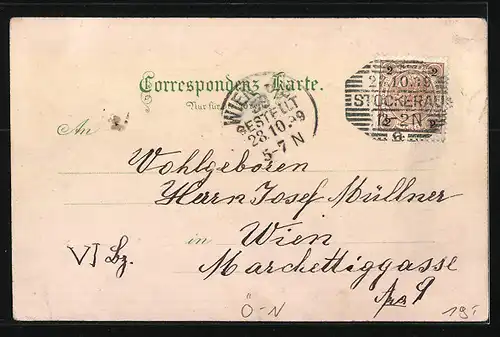 Correspondenz-Karte.
Nur für
An
WIEN
BESTELLT
28.10.99
5-7N
2 2
10.99
STOCKERAU
2N
Wohlgeboren
Herrn Josef Müllner
in Wien
VI Bz.
Marchettiggasse
9
Ö-N
19.-